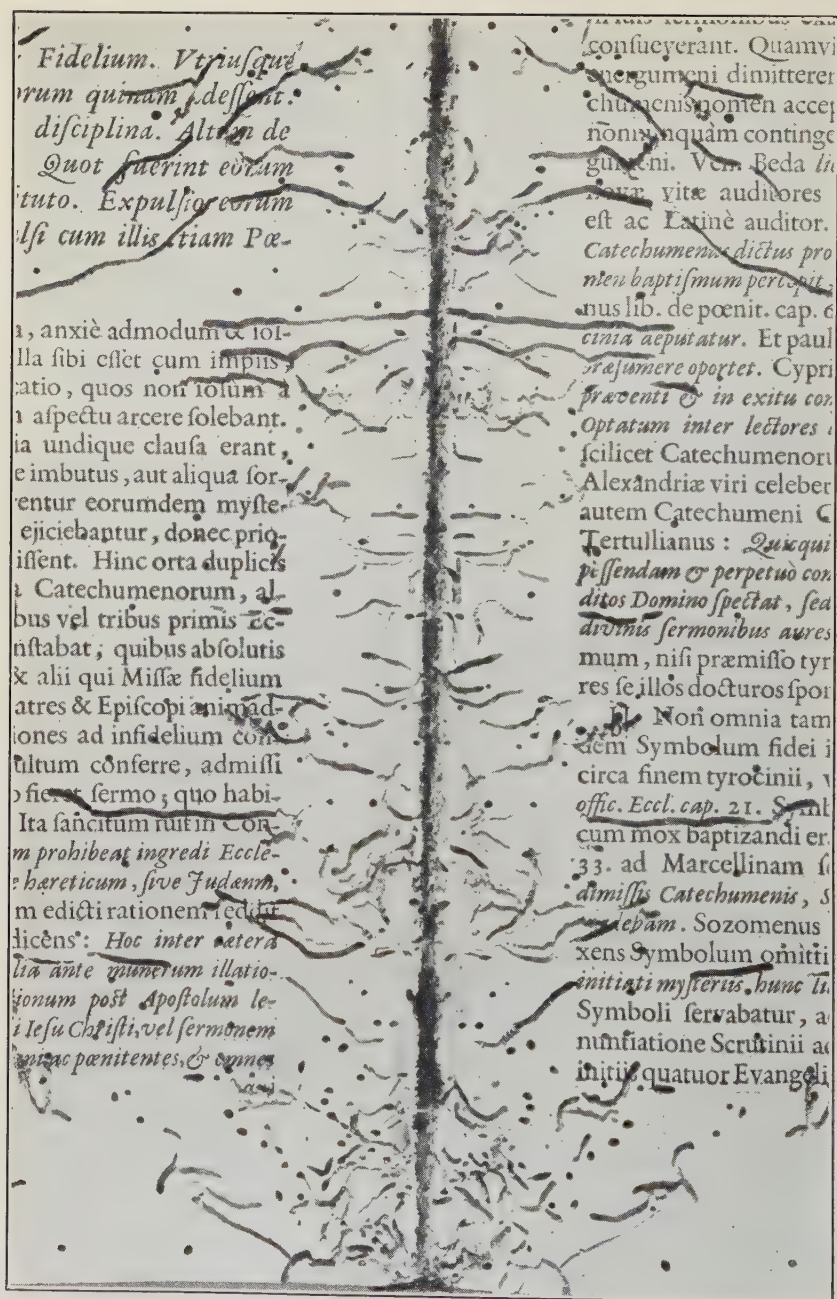 Fidelium. Vtriuſque
orum quinam deſſent.
diſciplina. Altum de
Quot fuerint eorum
tuto. Expulſio eorum
lſi cum illis etiam Pœ-
a, anxiè admodum & ſol-
lla ſibi eſſet cum impiis,
catio, quos non ſolum à
aſpectu arcere ſolebant.
ia undique clauſa erant,
e imbutus, aut aliqua ſor-
rentur eorumdem myſte-
ejiciebantur, donec priq-
iſſent. Hinc orta duplicis
a Catechumenorum, al-
bus vel tribus primis Ec-
nſtabat; quibus abſolutis
& alii qui Miſſæ fidelium
atres & Epiſcopi animad-
iones ad infidelium con-
ultum conferre, admiſſi
o fieret ſermo; quo habi-
Ita ſancitum fuit in Con-
m prohibeat ingredi Eccle-
e hæreticum, ſive Judæum,
m edicti rationem reddit
dicens: Hoc inter cætera
lia ante munerum illatio-
ionum poſt Apoſtolum le-
i Ieſu Chriſti, vel ſermonem
ac pœnitentes, & omnes
conſueverant. Quamvi
energumeni dimitterer
chumenis nomen accep
nonnunquàm continge
gumeni. Ven. Beda li
novæ vitæ auditores
eſt ac Latinè auditor.
Catechumenus dictus pro
men baptiſmum percepit,
nus lib. de pœnit. cap. 6
cinia deputatur. Et paul
præſumere oportet. Cypri
præventi & in exitu con
Optatum inter lectores
ſcilicet Catechumenoru
Alexandriæ viri celeber
autem Catechumeni C
Tertullianus: Quicqui
piſſendam & perpetuò con
ditos Domino ſpectat, ſed
divinis ſermonibus aures
mum, niſi præmiſſo tyr
res ſe illos docturos ſpon
II. Non omnia tam
dem Symbolum fidei i
circa finem tyrocinii, v
offic. Eccl. cap. 21. Symb
cum mox baptizandi er
33. ad Marcellinam ſ
dimiſſis Catechumenis, S
debam. Sozomenus
xens Symbolum omitti
initiati myſteriis hunc li
Symboli ſervabatur, a
nuntiatione Scrutinii ac
initiis quatuor Evangeli